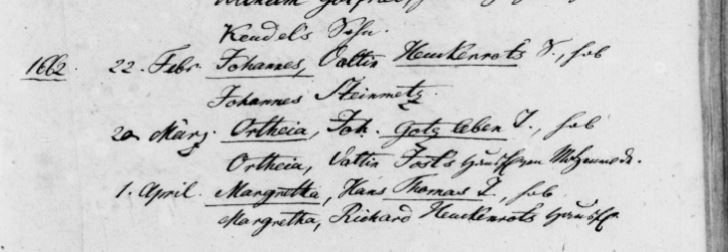 Kendel's Sohn.
1662. 22. Febr. Johannes, Valtin Henckenrots S., hob
Johannes Steinmetz.
20 März. Ortheia, Joh. Gotzleben T., hob
Ortheia, Valtin Jost's
1. April. Margretha, Hans Thomas T., hob
Margretha, Richard Henckenrots Hausfr.